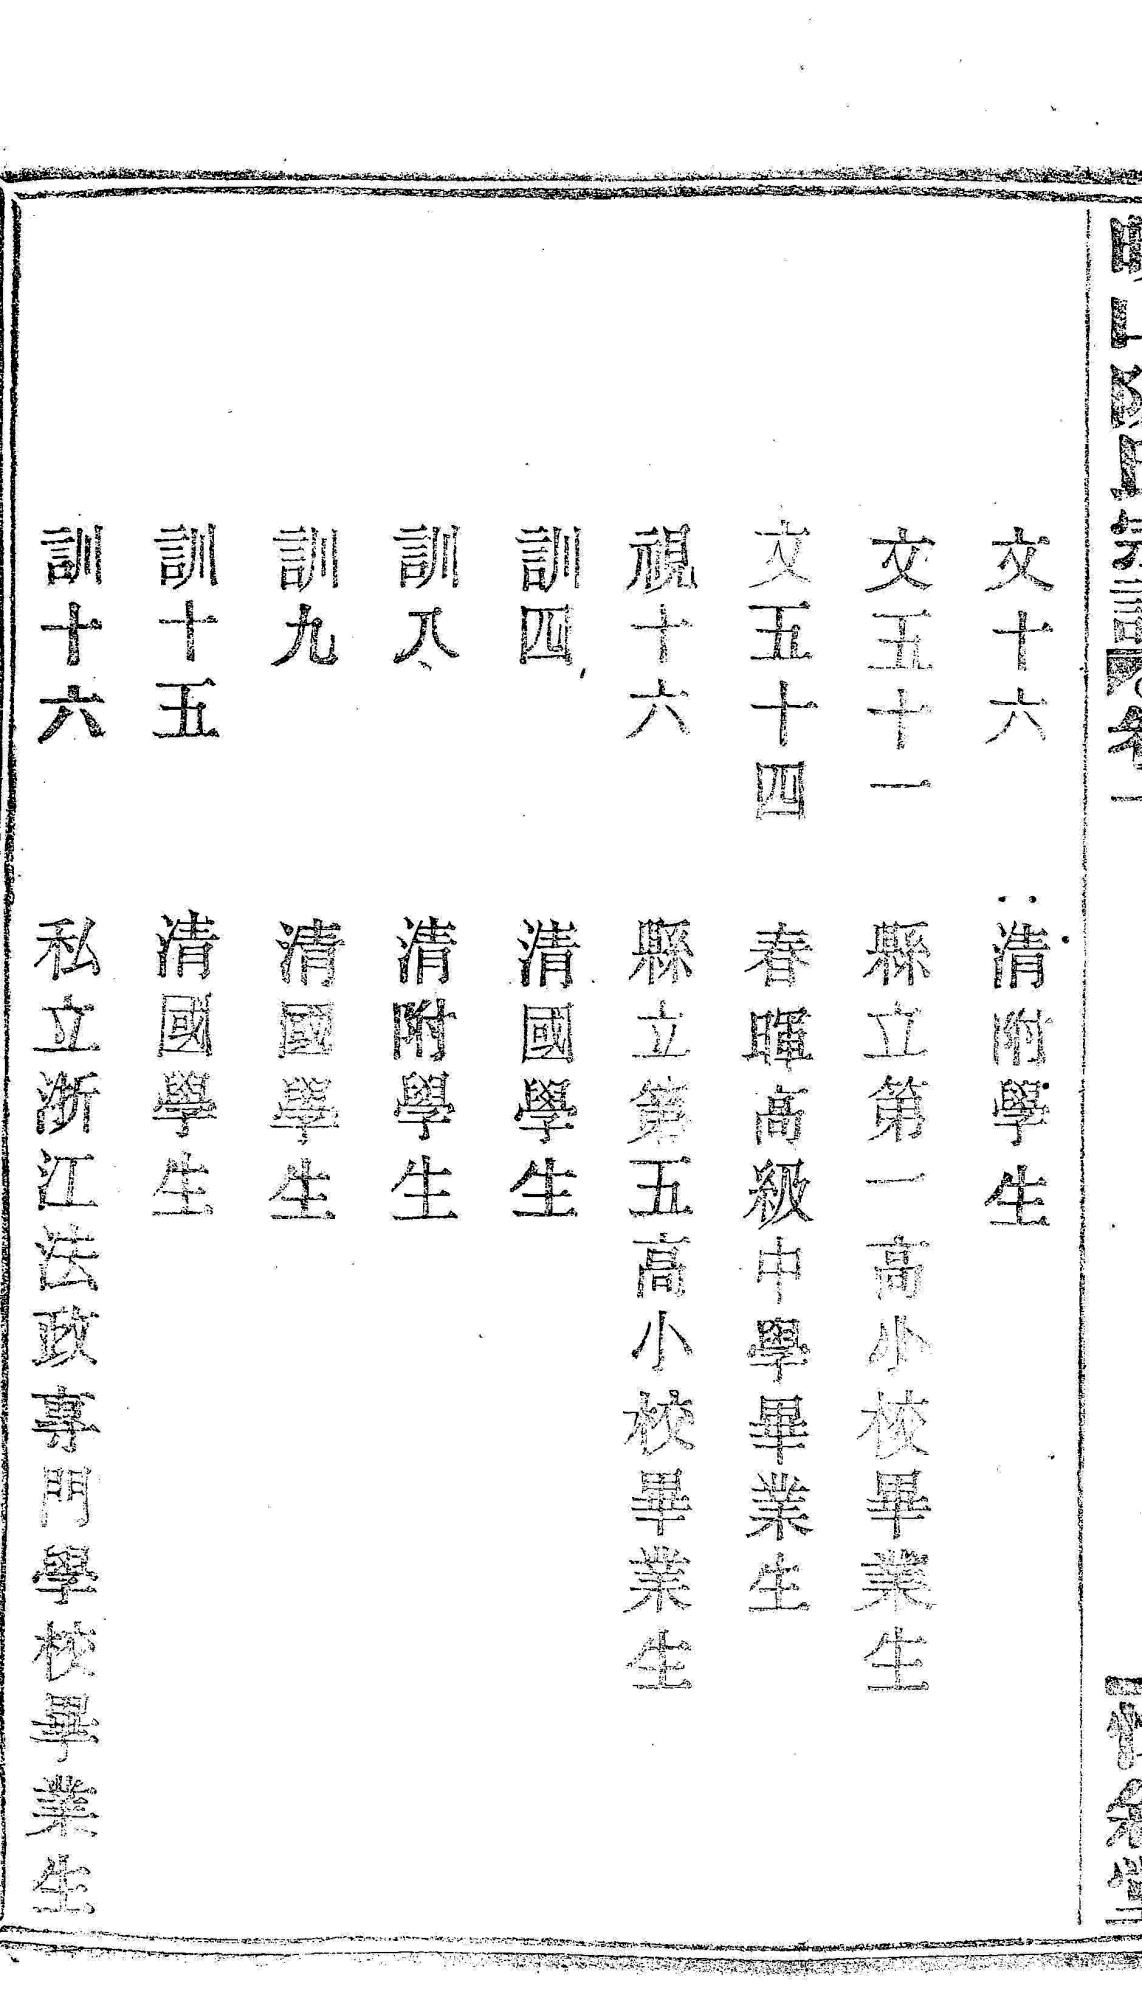 文十六 清附學生
文五十一 縣立第一高小校畢業生
文五十四 春暉高級中學畢業生
視十六 縣立第五高小校畢業生
訓四 清國學生
訓八 清附學生
訓九 清國學生
訓十五 清國學生
訓十六 私立浙江法政專門學校畢業生